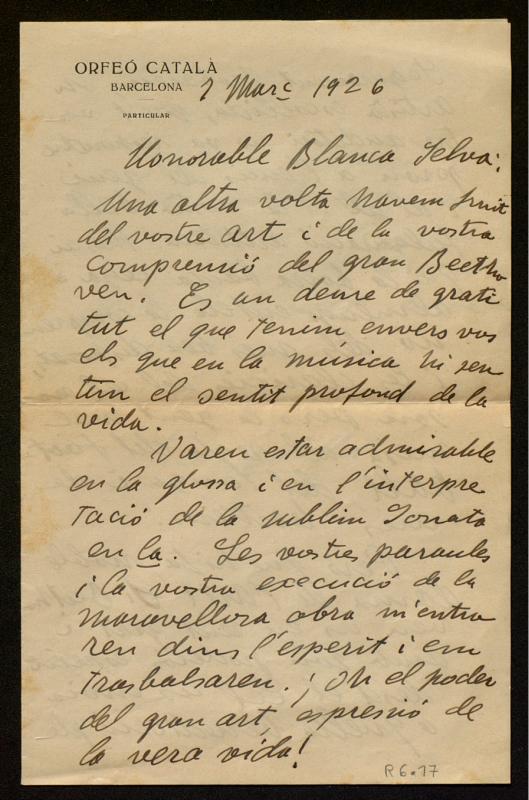 ORFEÓ CATALÀ
BARCELONA
PARTICULAR
7 Març 1926
Honorable Blanca Selva:
Una altra volta havem fruit
del vostre art i de la vostra
comprensió del gran Beetho
ven. Es un deure de grati
tut el que tenim envers vos
els que en la música hi sen
tim el sentit profond de la
vida.
Varen estar admirable
en la glossa i en l'interpre
tació de la sublim Sonata
en la. Les vostres paraules
i la vostra execució de la
maravellosa obra m'entra
ren dins l'esperit i em
trasbalsaren. ¡Oh el poder
del gran art, espressió de
la vera vida!
R 6.17